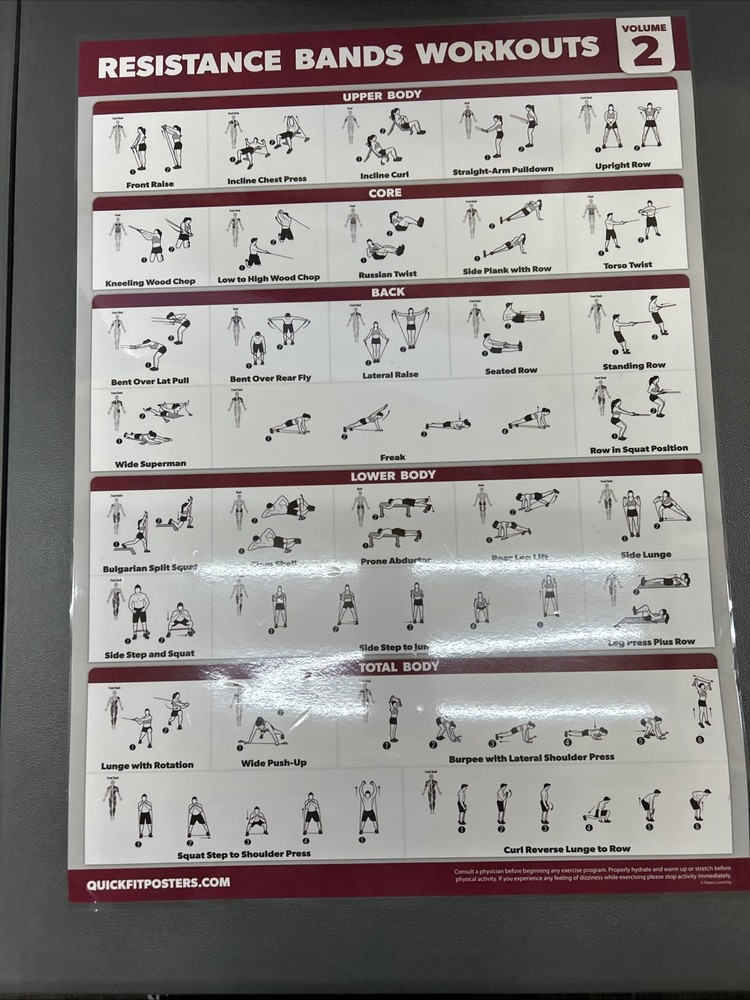 RESISTANCE BANDS WORKOUTS
VOLUME
2
UPPER BODY
Front Raise
Incline Chest Press
Incline Curl
Straight-Arm Pulldown
Upright Row
CORE
Kneeling Wood Chop
Low to High Wood Chop
Russian Twist
Side Plank with Row
Torso Twist
BACK
Bent Over Lat Pull
Bent Over Rear Fly
Lateral Raise
Seated Row
Standing Row
Wide Superman
Freak
Row in Squat Position
LOWER BODY
Bulgarian Split Squat
Clam Shell
Prone Abductor
Rear Leg Lift
Side Lunge
Side Step and Squat
Side Step to
Leg Press Plus Row
TOTAL BODY
Lunge with Rotation
Wide Push-Up
Burpee with Lateral Shoulder Press
Squat Step to Shoulder Press
Curl Reverse Lunge to Row
QUICKFITPOSTERS.COM
Consult a physician before beginning any exercise program. Properly hydrate and warm up or stretch before
physical activity. If you experience any feeling of dizziness while exercising please stop activity immediately.
© Palace Learning